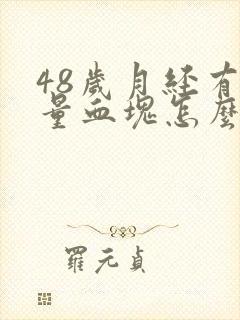 48歲月經有
量血塊怎麼
羅元貞